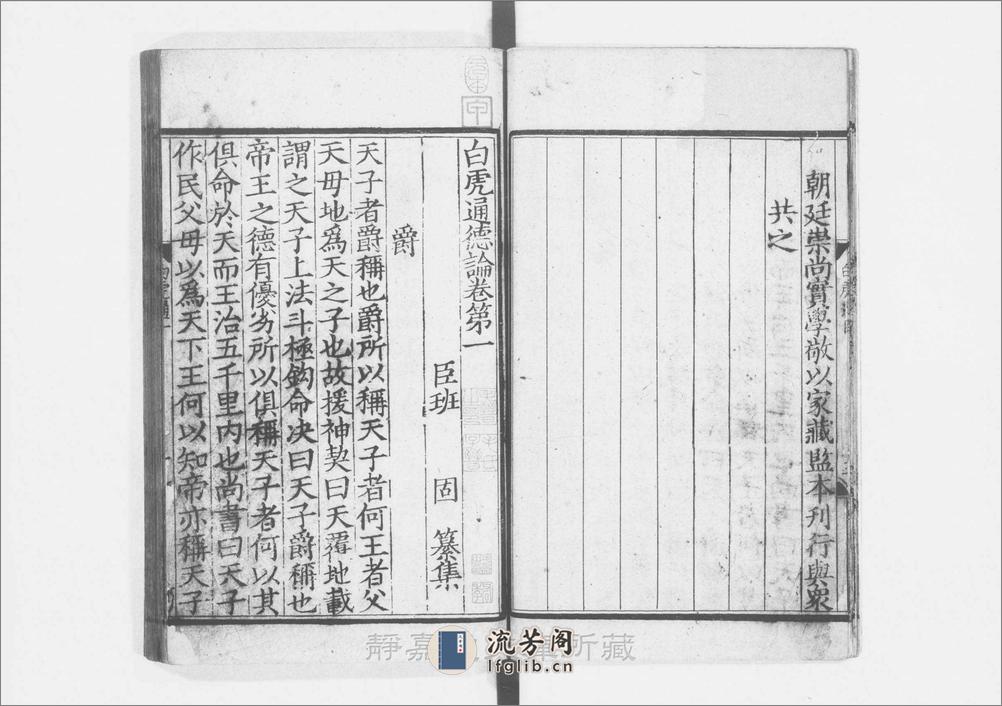 朝廷崇尚實學敬以家藏監本刊行與衆
共之
白虎通德論卷第一
臣班 固 纂集
爵
天子者爵稱也爵所以稱天子者何王者父
天母地爲天之子也故援神契曰天覆地載
謂之天子上法斗極鈎命决曰天子爵稱也
帝王之德有優劣所以俱稱天子者何以其
俱命於天而王治五千里内也尚書曰天子
作民父母以爲天下王何以知帝亦稱天子
白虎通一
靜嘉 所藏
流芳阁
lfglib.cn